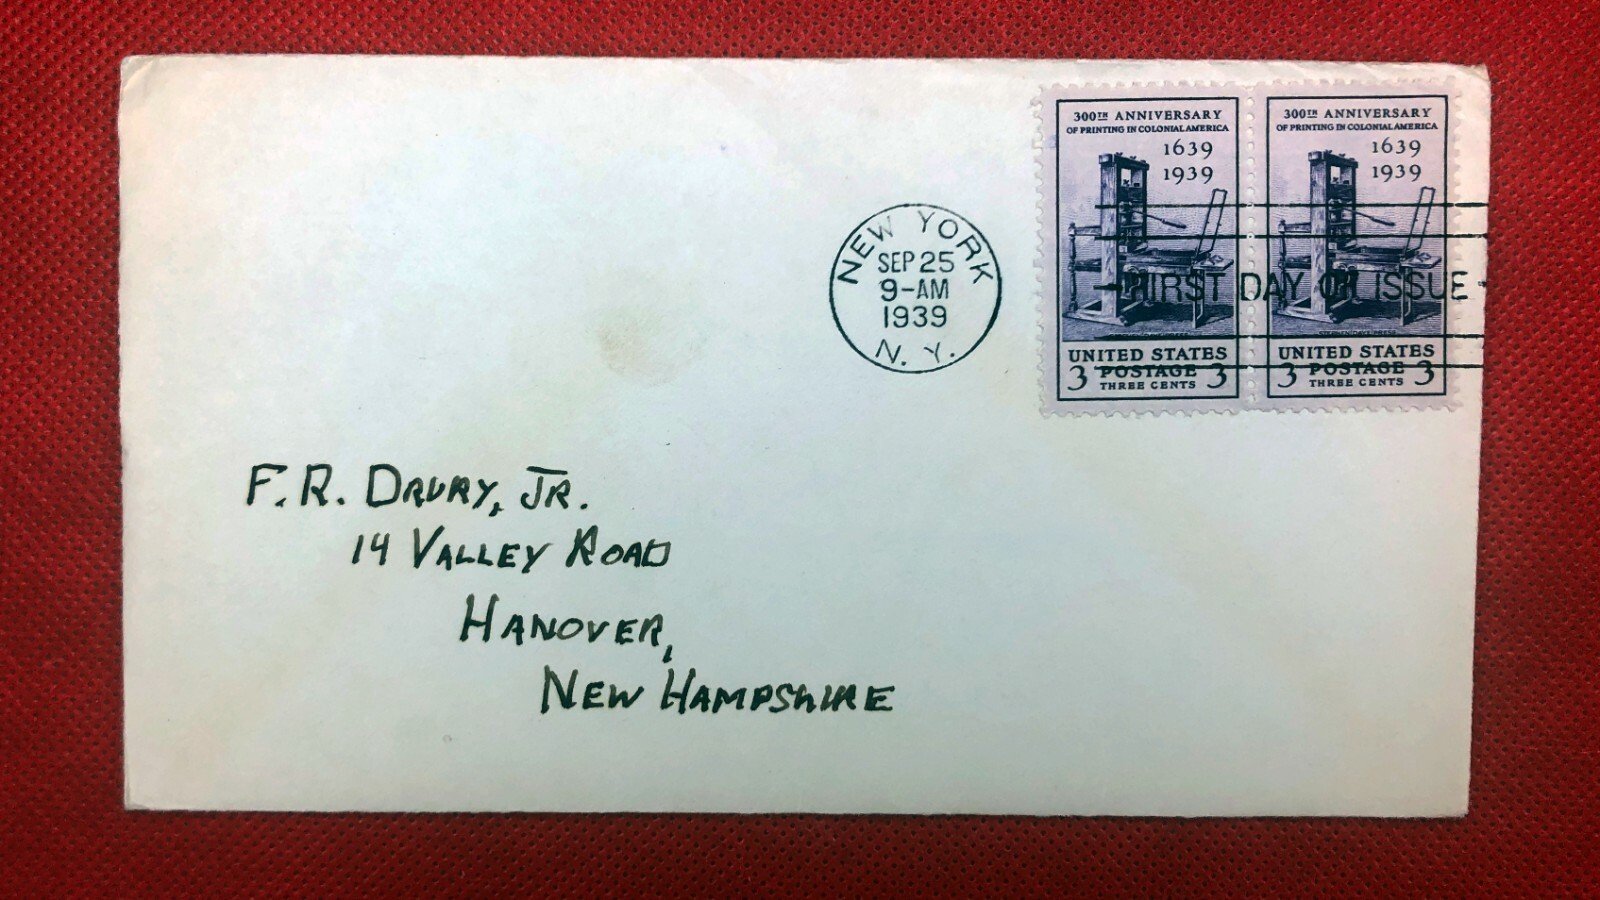 300TH ANNIVERSARY
OF PRINTING IN COLONIAL AMERICA
1639
1939
STEPHEN DAYE PRESS
UNITED STATES
POSTAGE
3 THREE CENTS 3
300TH ANNIVERSARY
OF PRINTING IN COLONIAL AMERICA
1639
1939
STEPHEN DAYE PRESS
UNITED STATES
POSTAGE
3 THREE CENTS 3
NEW YORK
SEP 25
9-AM
1939
N. Y.
FIRST DAY OF ISSUE
F. R. DRURY, JR.
14 VALLEY ROAD
HANOVER,
NEW HAMPSHIRE